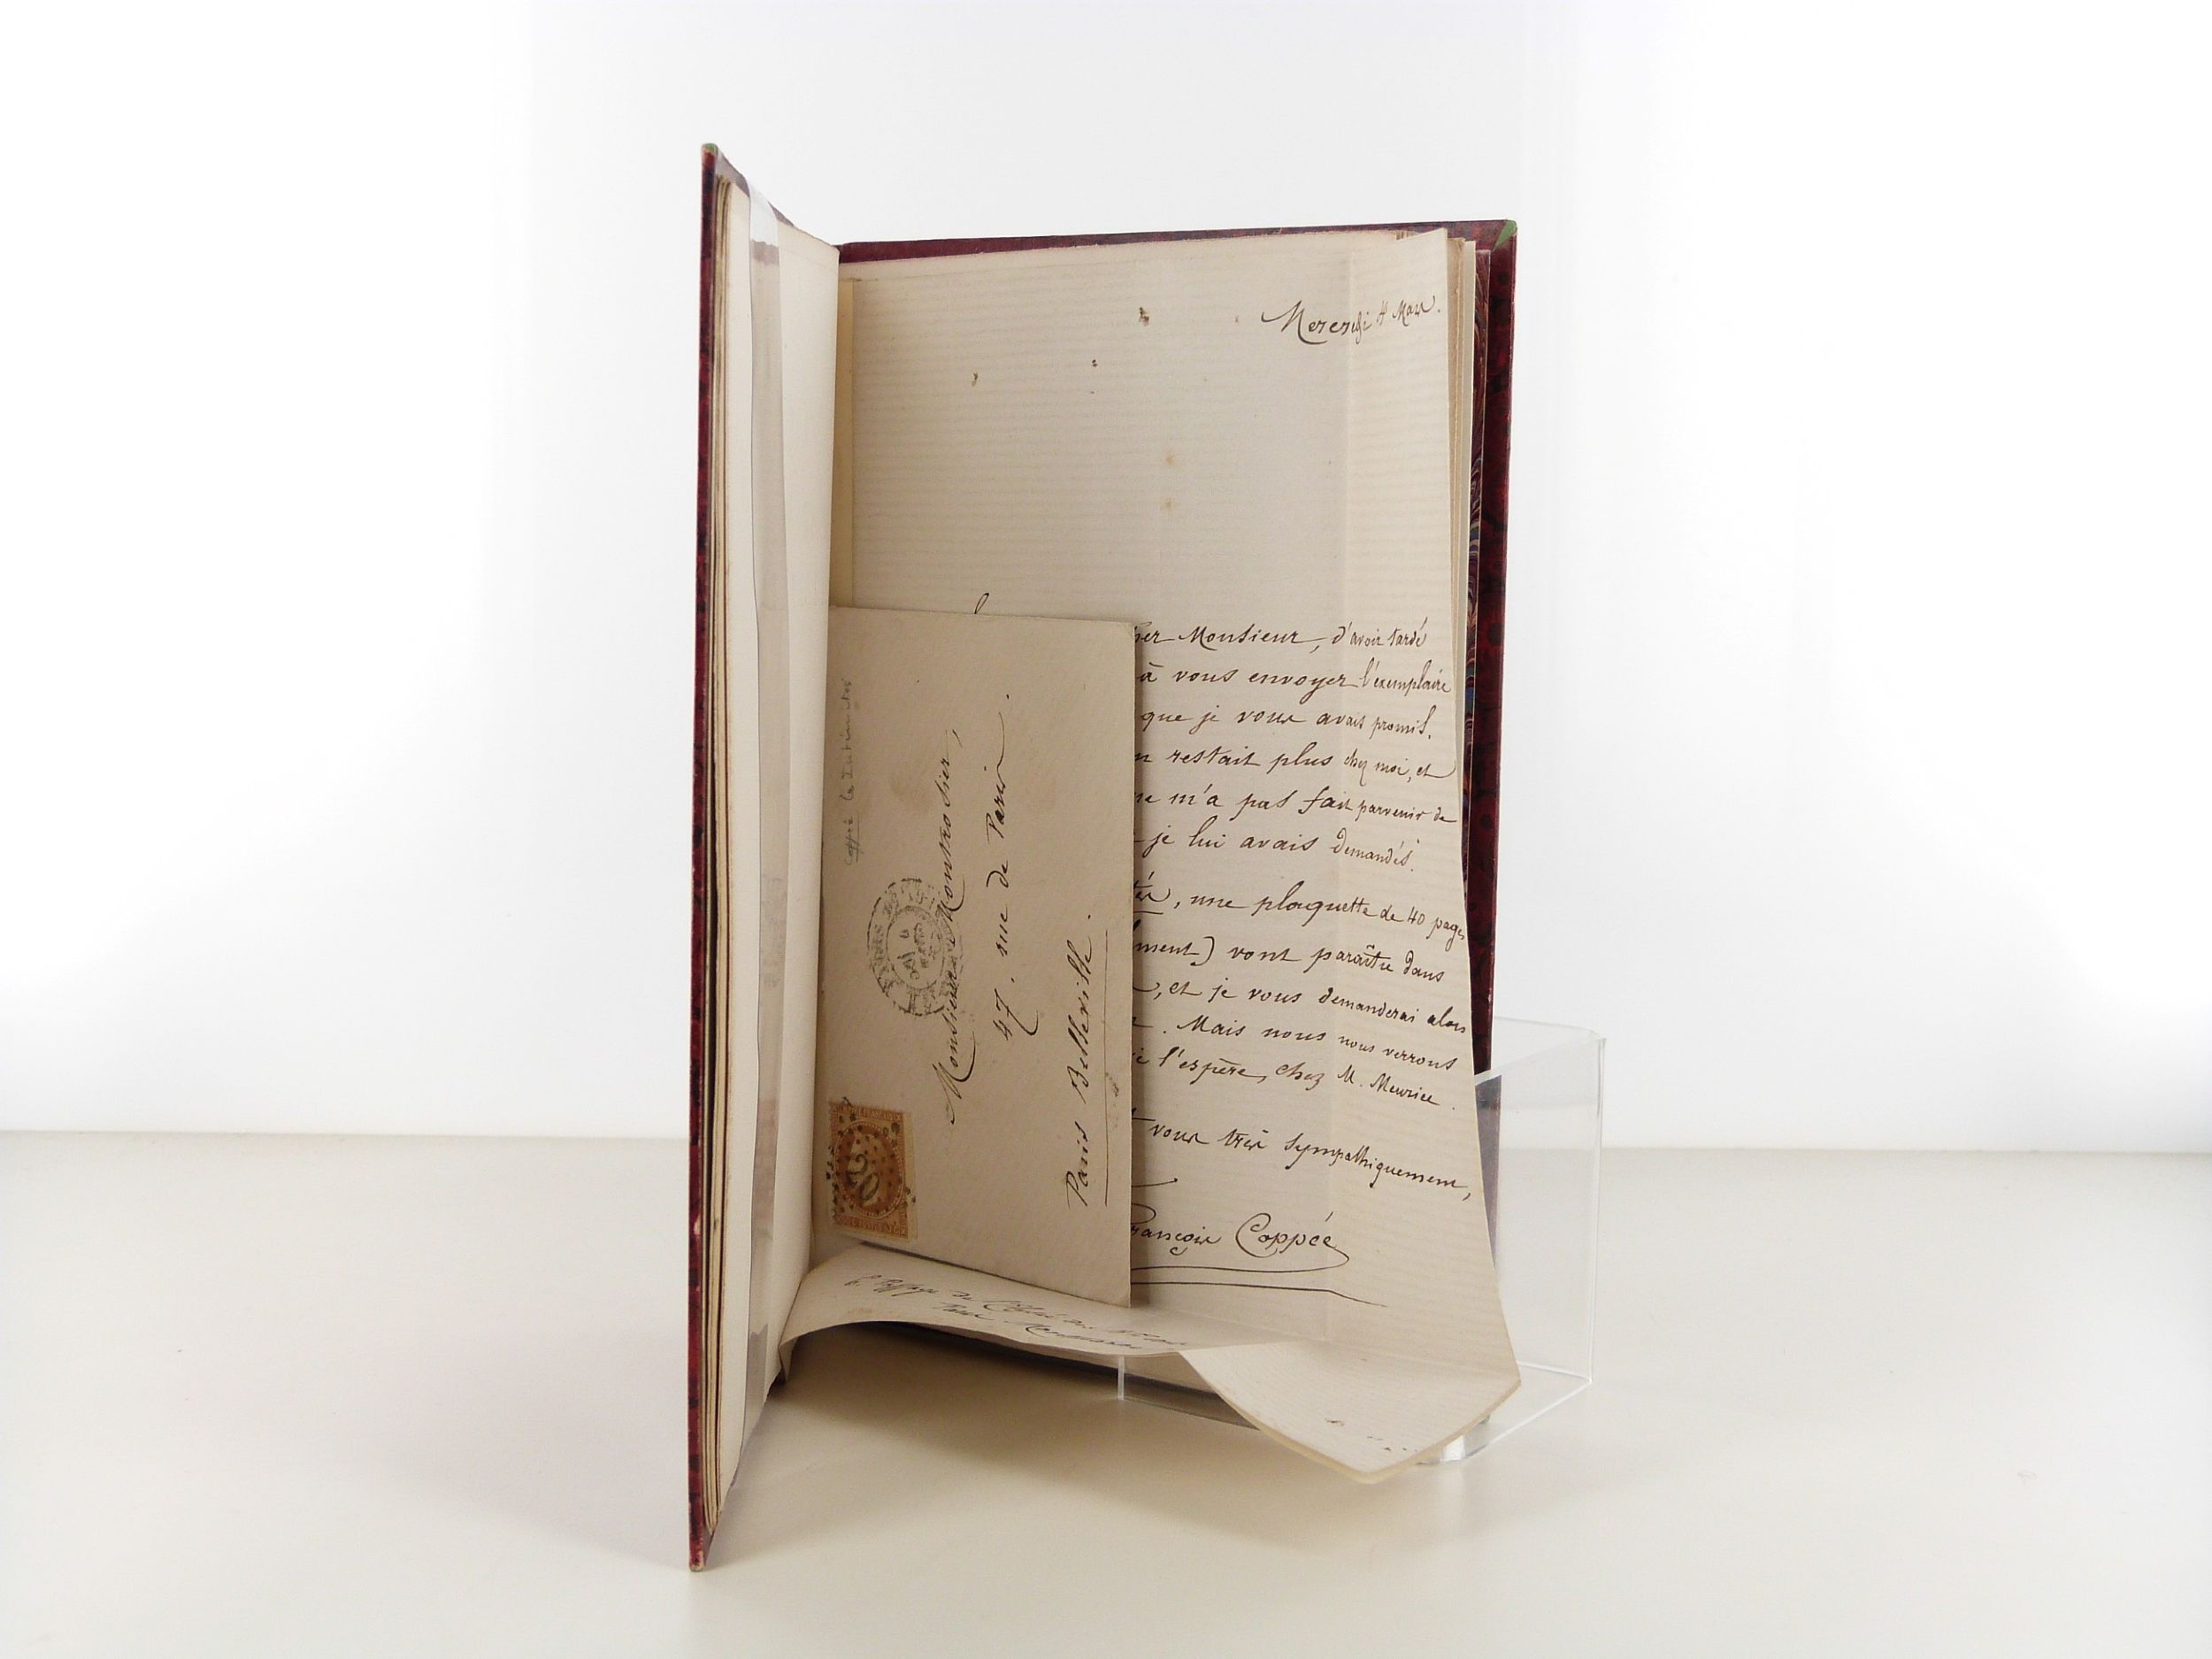 Mercredi 4 Mars.
cher Monsieur, d'avoir tardé
à vous envoyer l'exemplaire
que je vous avais promis.
restait plus chez moi, et
ne m'a pas fait parvenir de
je lui avais demandés.
, une plaquette de 40 pages
ment) vont paraître dans
, et je vous demanderai alors
. Mais nous nous verrons
l'espère, chez M. Meurice.
vous très sympathiquement,
François Coppée
Coppée les Intimités
Monsieur Montrosier,
47. rue de Paris.
Paris Belleville.
20